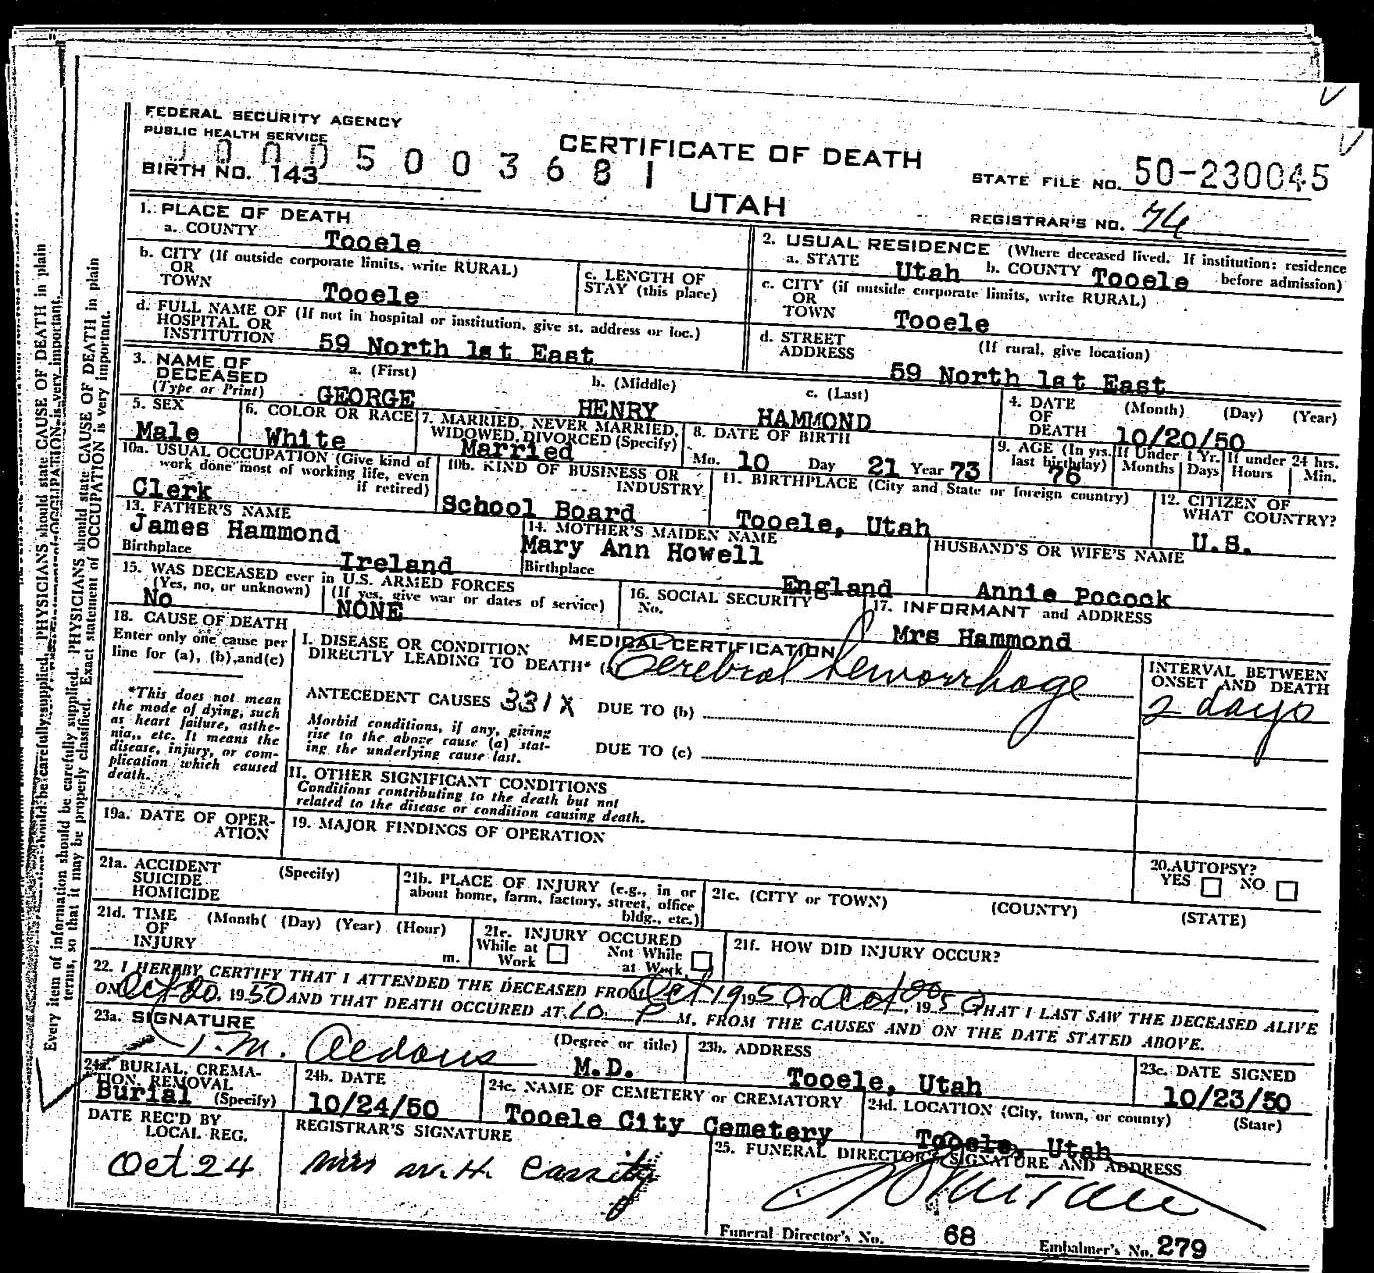 FEDERAL SECURITY AGENCY
PUBLIC HEALTH SERVICE
CERTIFICATE OF DEATH
UTAH
5003681
BIRTH NO. 143
STATE FILE NO. 50-230045
REGISTRAR'S NO. 74
1. PLACE OF DEATH
a. COUNTY Tooele
b. CITY (If outside corporate limits, write RURAL)
OR
TOWN Tooele
c. LENGTH OF
STAY (this place)
d. FULL NAME OF (If not in hospital or institution, give st. address or loc.)
HOSPITAL OR
INSTITUTION 59 North 1st East
2. USUAL RESIDENCE (Where deceased lived. If institution: residence
before admission)
a. STATE Utah b. COUNTY Tooele
c. CITY (if outside corporate limits, write RURAL)
OR
TOWN Tooele
d. STREET
ADDRESS (If rural, give location)
59 North 1st East
3. NAME OF
DECEASED
(Type or Print)
a. (First) b. (Middle) c. (Last)
GEORGE HENRY HAMMOND
4. DATE
OF
DEATH (Month) (Day) (Year)
10/20/50
5. SEX
Male
6. COLOR OR RACE
White
7. MARRIED, NEVER MARRIED,
WIDOWED, DIVORCED (Specify)
Married
8. DATE OF BIRTH
Mo. 10 Day 21 Year 73
9. AGE (In yrs.
last birthday)
76
If Under 1 Yr.
Months Days
If under 24 hrs.
Hours Min.
10a. USUAL OCCUPATION (Give kind of
work done most of working life, even
if retired)
Clerk
10b. KIND OF BUSINESS OR
INDUSTRY
School Board
11. BIRTHPLACE (City and State or foreign country)
Tooele, Utah
12. CITIZEN OF
WHAT COUNTRY?
U.S.
13. FATHER'S NAME
James Hammond
Birthplace Ireland
14. MOTHER'S MAIDEN NAME
Mary Ann Howell
Birthplace England
HUSBAND'S OR WIFE'S NAME
Annie Pocock
15. WAS DECEASED ever in U.S. ARMED FORCES
(Yes, no, or unknown) (If yes, give war or dates of service)
No NONE
16. SOCIAL SECURITY
No.
17. INFORMANT and ADDRESS
Mrs Hammond
18. CAUSE OF DEATH
Enter only one cause per
line for (a), (b), and (c)
*This does not mean
the mode of dying, such
as heart failure, asthe-
nia, etc. It means the
disease, injury, or com-
plication which caused
death.
MEDICAL CERTIFICATION
I. DISEASE OR CONDITION
DIRECTLY LEADING TO DEATH* (a) Cerebral hemorrhage
ANTECEDENT CAUSES 331X DUE TO (b)
Morbid conditions, if any, giving
rise to the above cause (a) stat-
ing the underlying cause last.
DUE TO (c)
INTERVAL BETWEEN
ONSET AND DEATH
2 days
II. OTHER SIGNIFICANT CONDITIONS
Conditions contributing to the death but not
related to the disease or condition causing death.
19a. DATE OF OPER-
ATION
19. MAJOR FINDINGS OF OPERATION
20. AUTOPSY?
YES NO
21a. ACCIDENT (Specify)
SUICIDE
HOMICIDE
21b. PLACE OF INJURY (e.g., in or
about home, farm, factory, street, office
bldg., etc.)
21c. (CITY or TOWN) (COUNTY) (STATE)
21d. TIME (Month( (Day) (Year) (Hour)
OF
INJURY m.
21e. INJURY OCCURED
While at
Work
Not While
at Work
21f. HOW DID INJURY OCCUR?
22. I HEREBY CERTIFY THAT I ATTENDED THE DECEASED FROM Oct 19 1950 TO Oct 20 1950 THAT I LAST SAW THE DECEASED ALIVE
ON Oct 20, 1950 AND THAT DEATH OCCURED AT 10 P M. FROM THE CAUSES AND ON THE DATE STATED ABOVE.
23a. SIGNATURE (Degree or title)
T.M. Aldous M.D.
23b. ADDRESS
Tooele, Utah
23c. DATE SIGNED
10/23/50
24a. BURIAL, CREMA-
TION, REMOVAL
Burial (Specify)
24b. DATE
10/24/50
24c. NAME OF CEMETERY or CREMATORY
Tooele City Cemetery
24d. LOCATION (City, town, or county) (State)
Tooele, Utah
DATE REC'D BY
LOCAL REG.
Oct 24
REGISTRAR'S SIGNATURE
Mrs W.H. Cassity
25. FUNERAL DIRECTOR'S SIGNATURE AND ADDRESS
Funeral Director's No. 68 Embalmer's No. 279
Every item of information should be carefully supplied. PHYSICIANS should state CAUSE OF DEATH in plain
terms, so that it may be properly classified. Exact statement of OCCUPATION is very important.